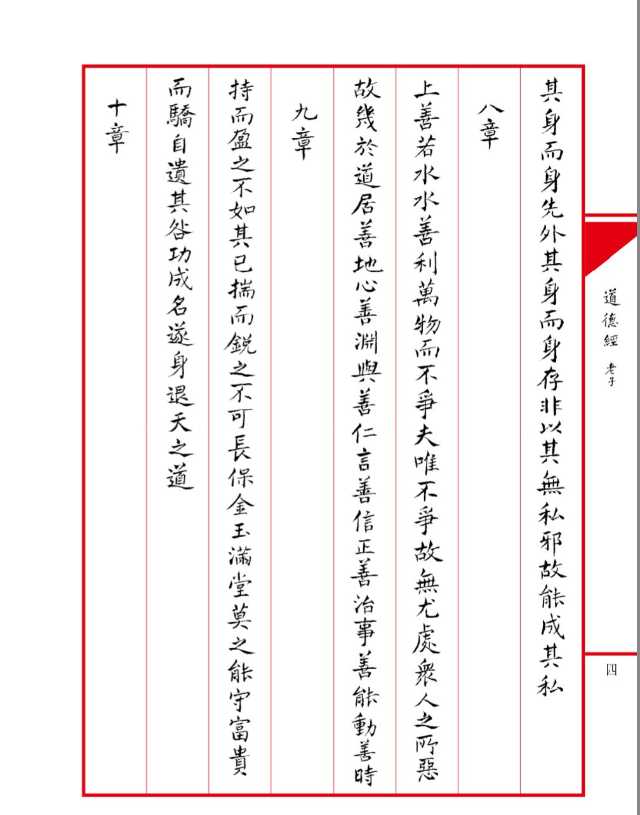 其身而身先外其身而身存非以其無私邪故能成其私
八章
上善若水水善利萬物而不爭夫唯不爭故無尤處衆人之所惡
故幾於道居善地心善淵與善仁言善信正善治事善能動善時
九章
持而盈之不如其已揣而銳之不可長保金玉滿堂莫之能守富貴
而驕自遺其咎功成名遂身退天之道
十章
道德經 老子
四